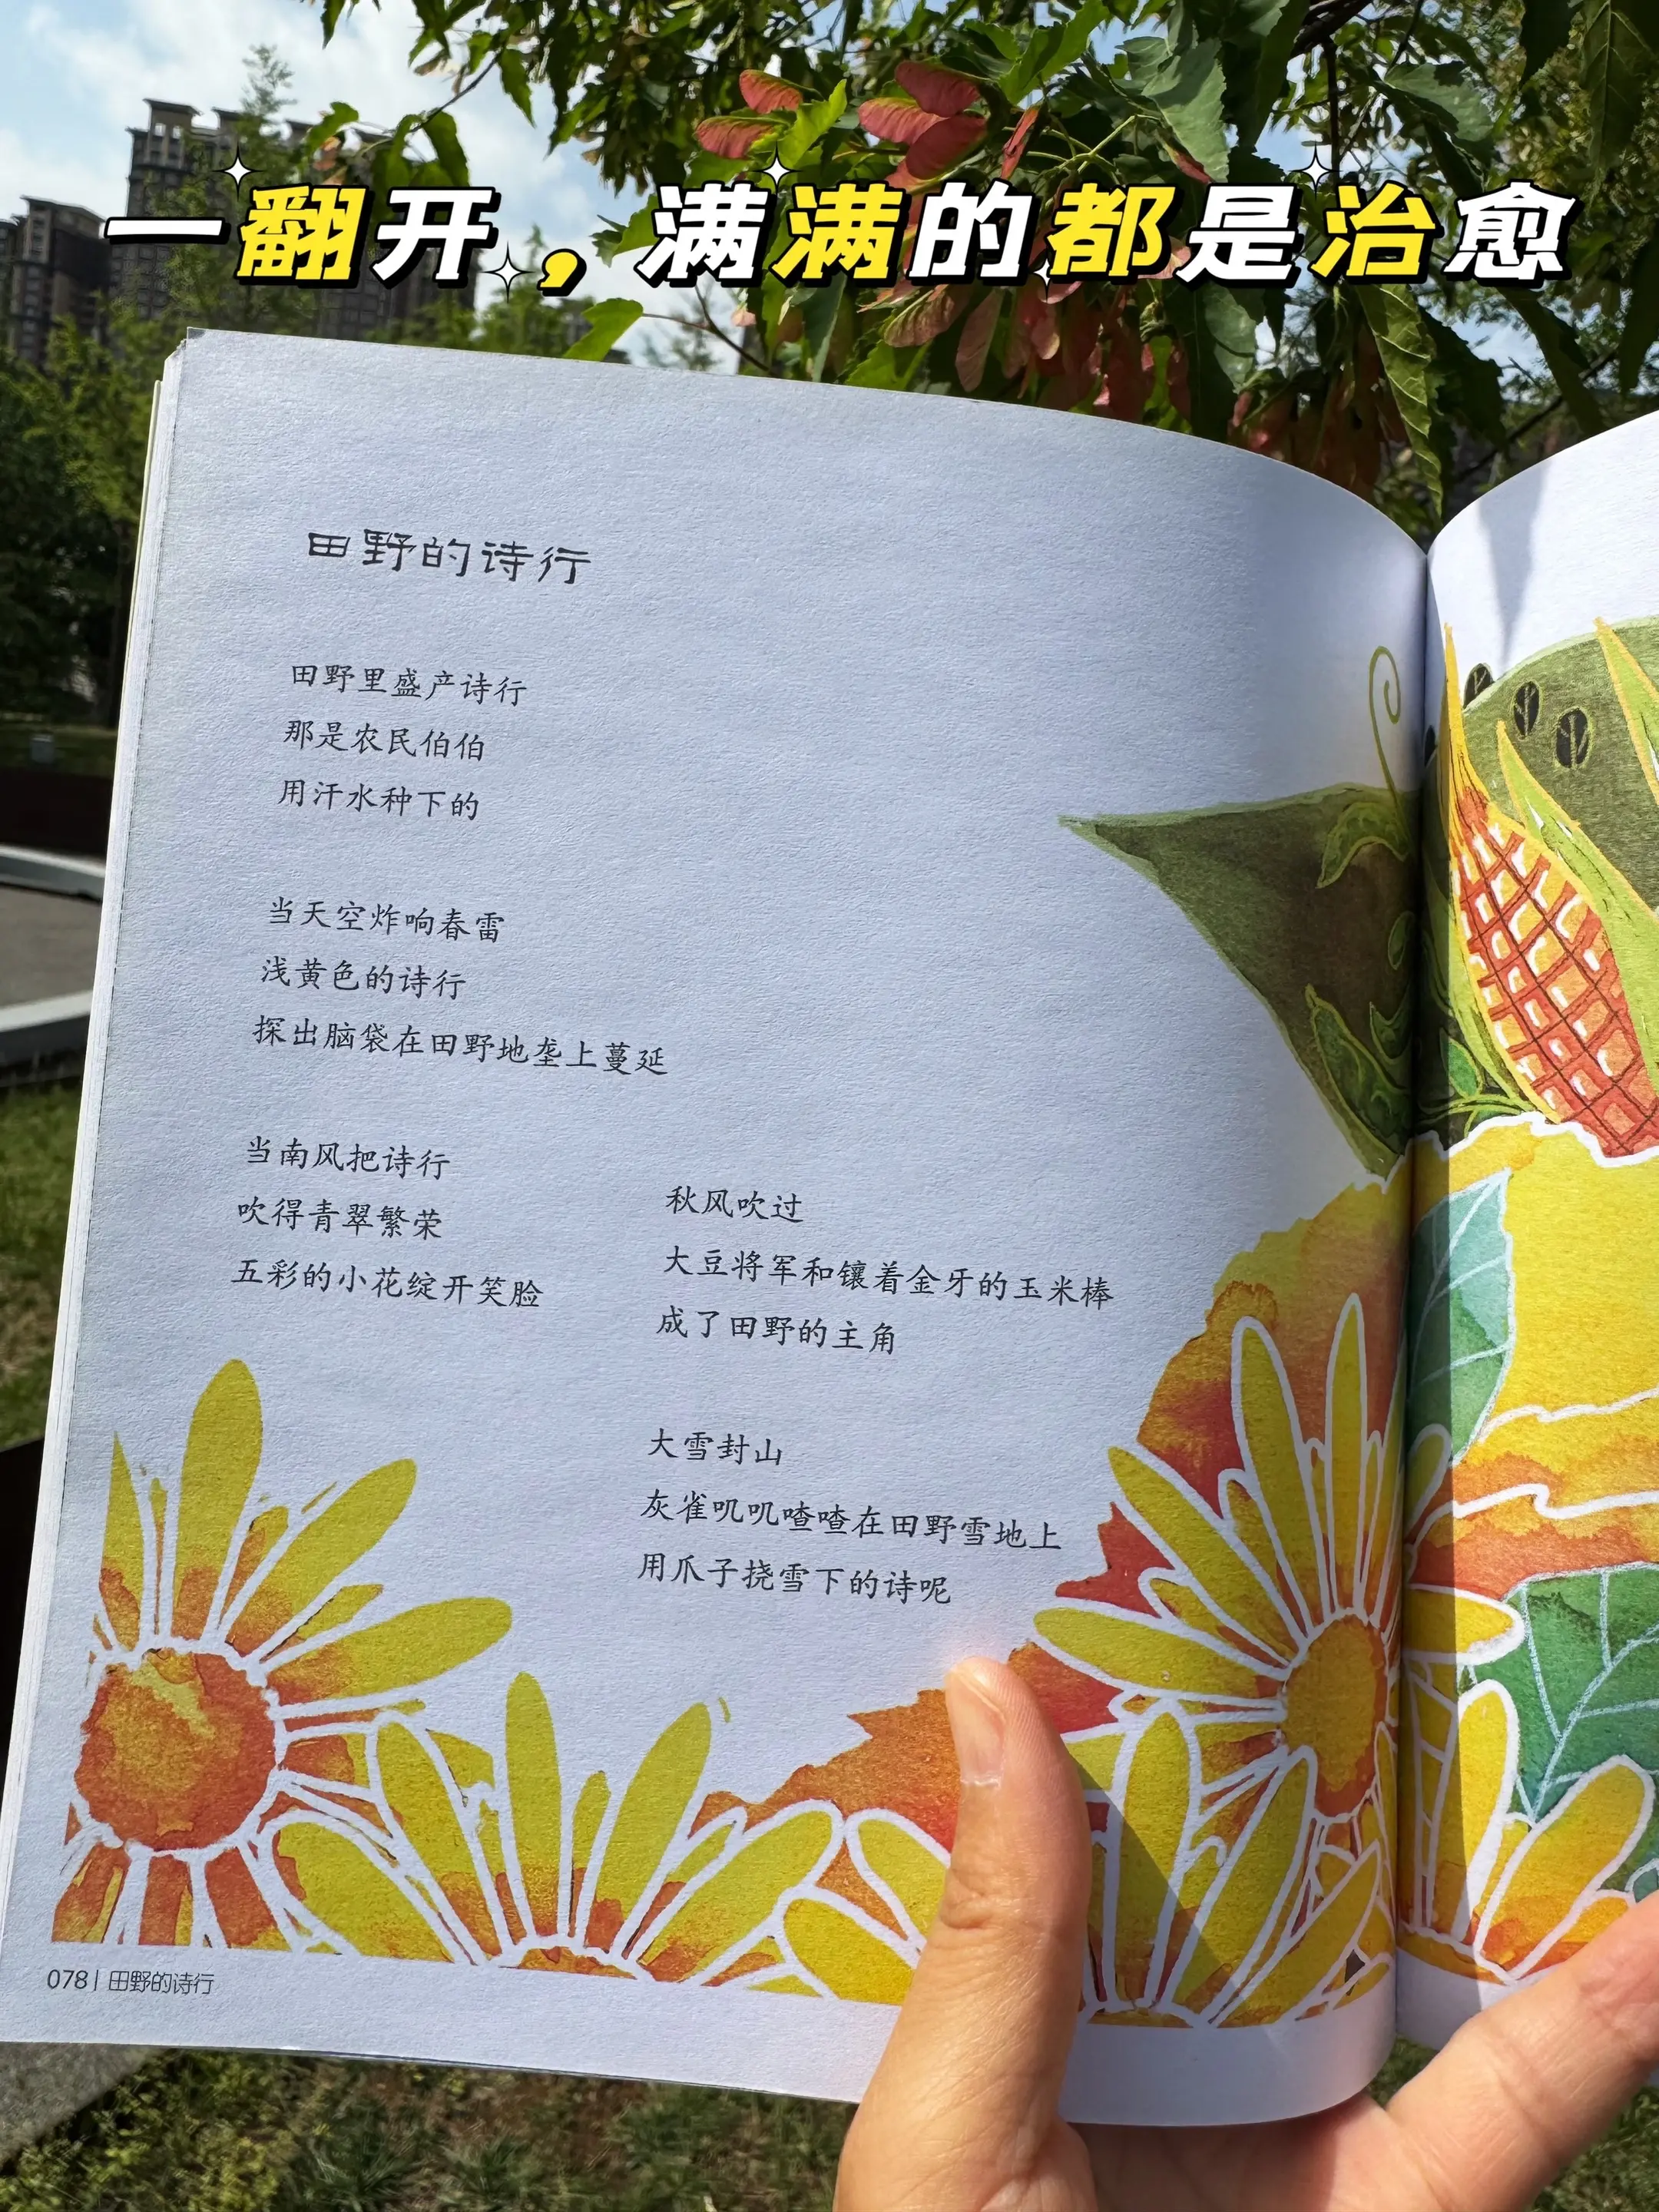 一翻开，满满的都是治愈
田野的诗行
田野里盛产诗行
那是农民伯伯
用汗水种下的
当天空炸响春雷
浅黄色的诗行
探出脑袋在田野地垄上蔓延
当南风把诗行
吹得青翠繁荣
五彩的小花绽开笑脸
秋风吹过
大豆将军和镶着金牙的玉米棒
成了田野的主角
大雪封山
灰雀叽叽喳喳在田野雪地上
用爪子挠雪下的诗呢
078| 田野的诗行